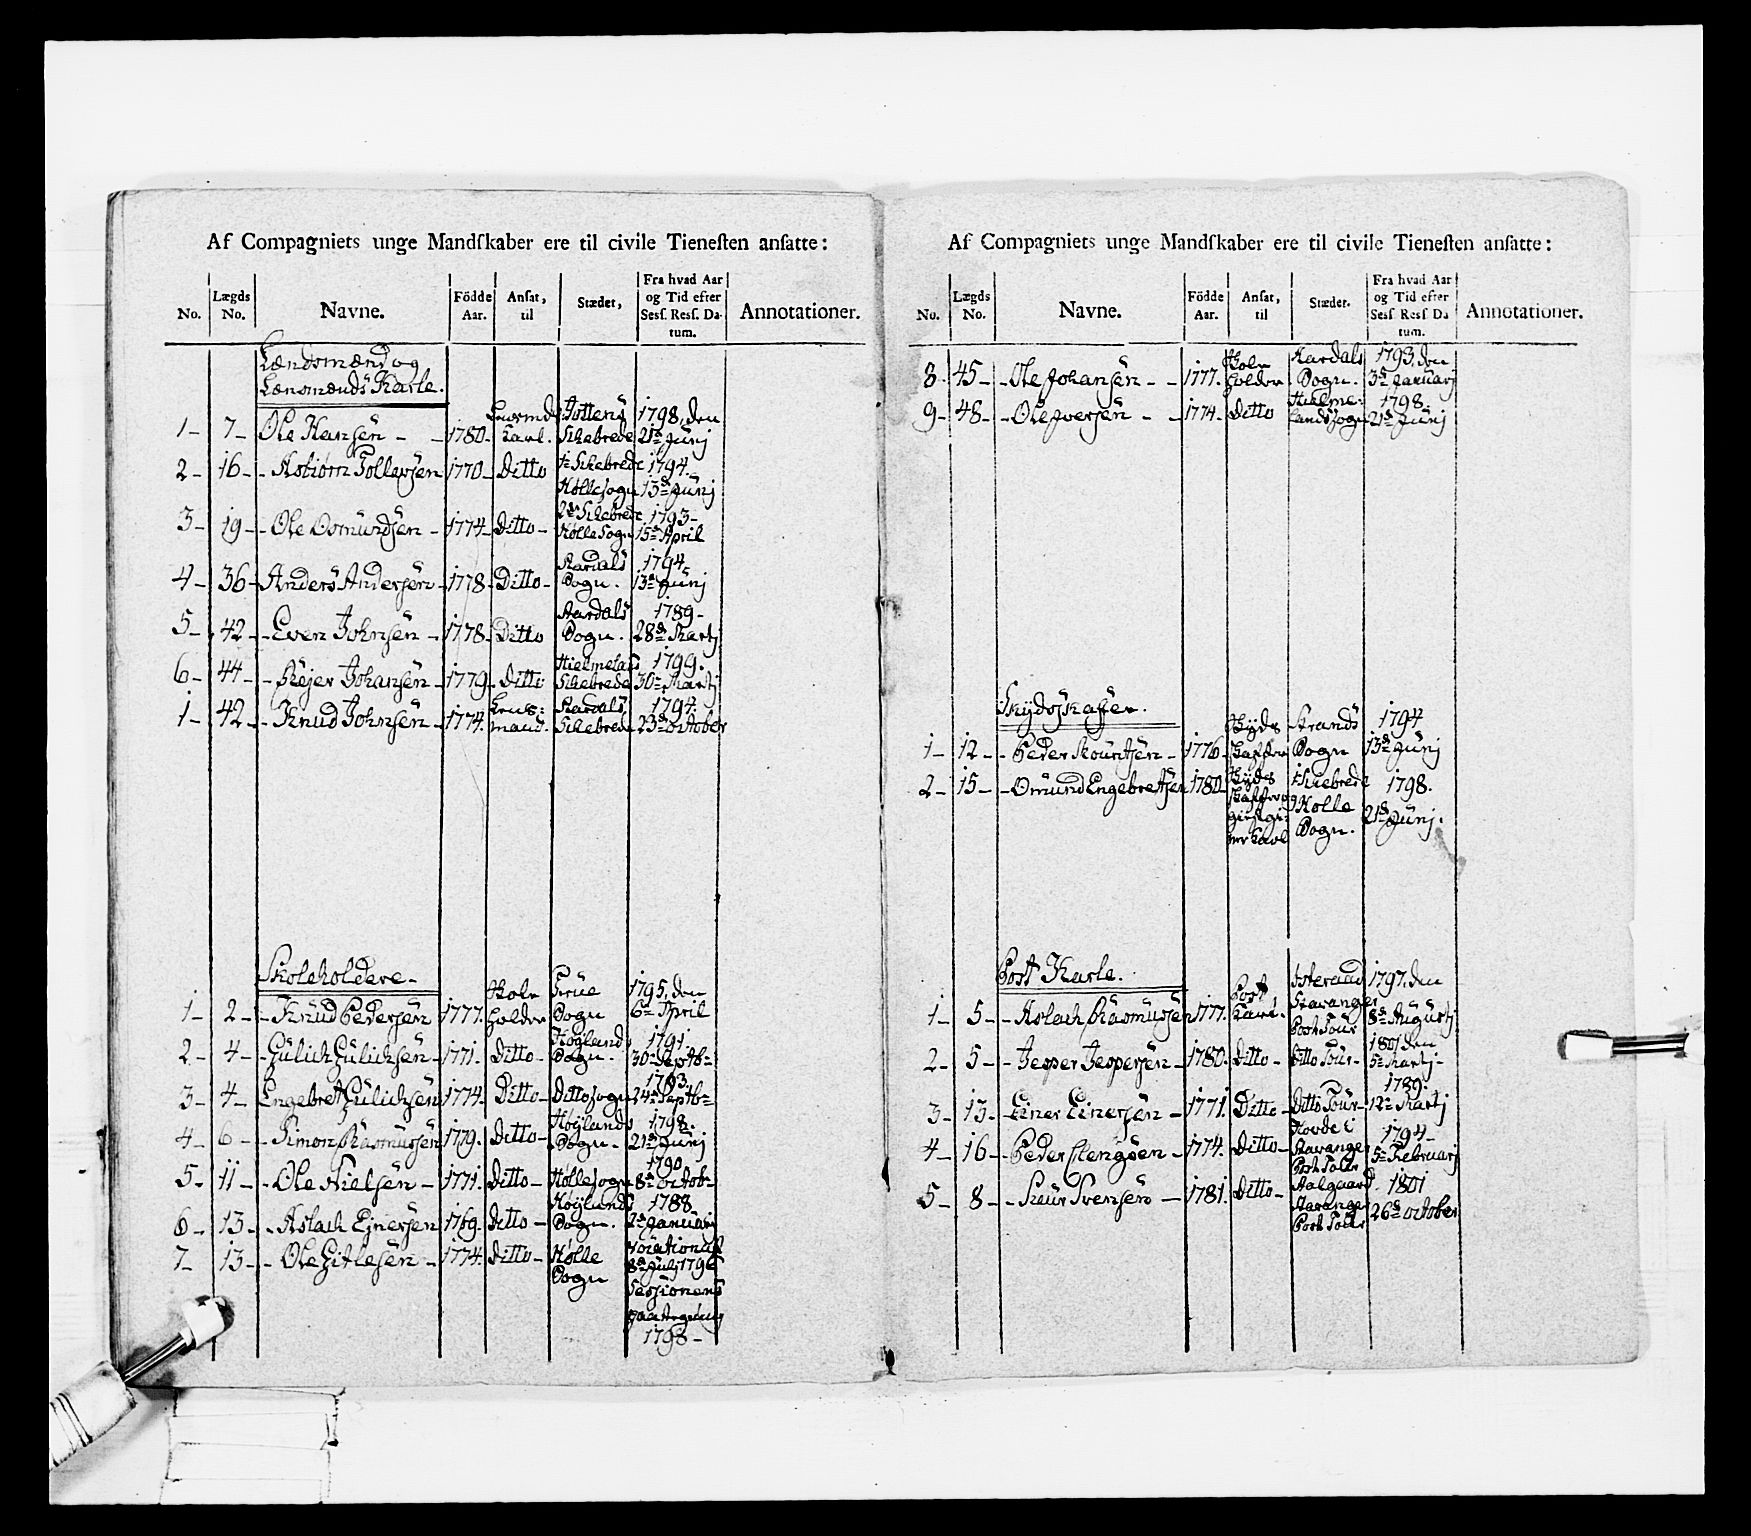 Af Compagniets unge Mandſkaber ere til civile Tieneſten anſatte:
No. Lægds No. Navne. Födde Aar. Anſat, til Stædet, Fra hvad Aar og Tid efter Seſſ. Reſſ. Datum. Annotationer.
Lændsmænd og
Lænsmænds Karle.
1 7 Ole Hansen 1780 Lensmds Karl. Skebrede 1798, den 21de Junj
2 16 Astiørn Tollevsen 1770 Ditto 1te Skebrede Hølle sogn 1794. 13de Junj
3 19 Ole Osmundsen 1774 Ditto 2det Skebrede Hølle Sogn 1793 15de April
4 36 Anders Andersen 1778 Ditto Aardals Sogn. 1794 13de Junj
5 42 Even Johnsen 1778 Ditto Aardals Sogn. 1789 28de Martj
6 44 Rejer Johansen 1779 Ditto Hielmelans Skebrede 1799. 30te Martj
1 42 Knud Johnsen 1774 Lensmand. Aardals Skebrede 1794. 23de october
Skoleholdere
1 2 Knud Pedersen 1777. Skole holder Sogn 1795, den 6te April
2 4 Gulich Gulichsen 1771. Ditto Høglands Sogn. 1791. 30te Septbr
3 4 Engebret Gulichsen 1774. Ditto Ditto sogn 1793, 24de Septbr
4 6 Simon Rasmussen 1779. Ditto Høylands Sogn. 1798. 21de Junj
5 11 Ole Nielsen 1771. Ditto Hølle sogn 1790 8de octobr
6 13 Aslach Ejnersen 1769. Ditto Høylands Sogn. 1788 2de Januarj
7 13 Ole Gitlesen 1774. Ditto Hølle Sogn 8de Julj 1796 Sessionens 1798
Af Compagniets unge Mandſkaber ere til civile Tieneſten anſatte:
No. Lægds No. Navne. Födde Aar. Anſat, til Stædet. Fra hvad Aar og Tid efter Seſſ. Reſſ. Datum. Annotationer.
8 45 Ole Johansen 1777. Skole holder Aardals Sogn. 1793, den 3de Januarj
9 48 Ole Iversen 1774 Ditto Hielmelands sogn 1798. 21de Junj
Skydsskaffer.
1 12 Peder Mouritsen 1776 Skyds Skaffer Strands Sogn 1794 13de Junj
2 15 Omund Engebretsen 1780 Skyds skaffer og 1te Skebrede Hølle Sogn. 1798. 21de Junj.
Post Karle.
1 5 Aslach Rasmussen 1777. Post Karl. Stavanger Post Tour 1797, den 8de Augustj
2 5 Jesper Jespersen 1780. Ditto Ditto Tour 1801 den 5te Martj
3 13 Einer Einersen 1771. Ditto Ditto Tour 1789. 12te Martj
4 16 Peder Clengsen 1774. Ditto Stavanger Post Tour 1794 5te Februarj
5 8 Siur Svensen 1781. Ditto Aalgaard Stavanger Post Tour 1801 26de october